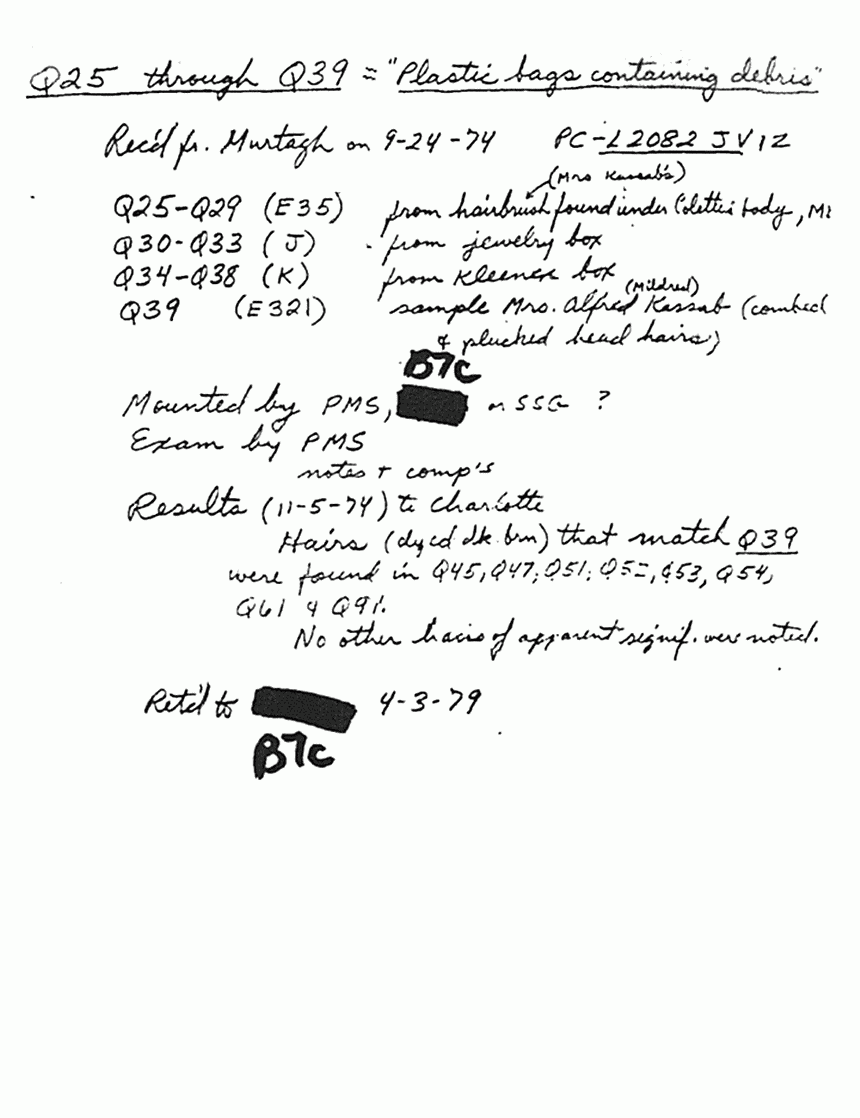 Q25 through Q39 = "Plastic bags containing debris"
Rec'd fr. Murtagh on 9-24-74 PC-L2082 JV1Z
(Mrs Kassab's)
Q25-Q29 (E35) from hairbrush found under Colette's body, M
Q30-Q33 (J) from jewelry box
Q34-Q38 (K) from Kleenex box
(Mildred)
Q39 (E321) sample Mrs. Alfred Kassab (combed
& plucked head hairs)
B7C
Mounted by PMS, or SSG ?
Exam by PMS
notes + comp's
Results (11-5-74) to Charlotte
Hairs (dyed dk. brn) that match Q39
were found in Q45, Q47, Q51, Q52, Q53, Q54,
Q61 & Q91.
No other hairs of apparent signif. were noted.
Ret'd to 4-3-79
B7C